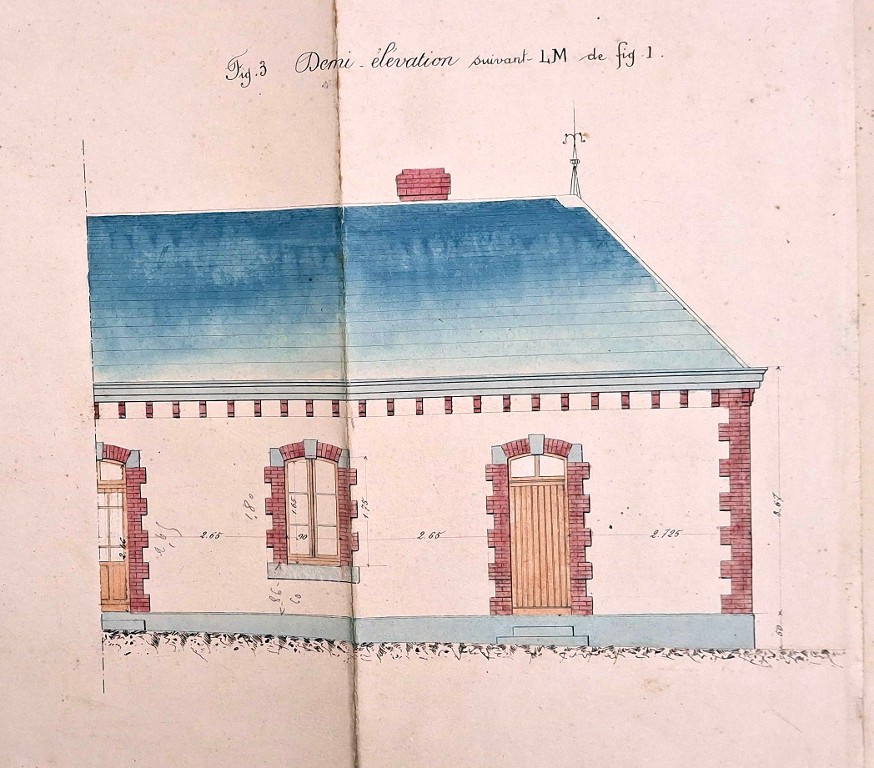 Fig. 3 Demi-élévation suivant LM de fig. 1.
1,80
1.65
1.75
2.65
2.65
90
2.65
2.725
3.67
86
60
50